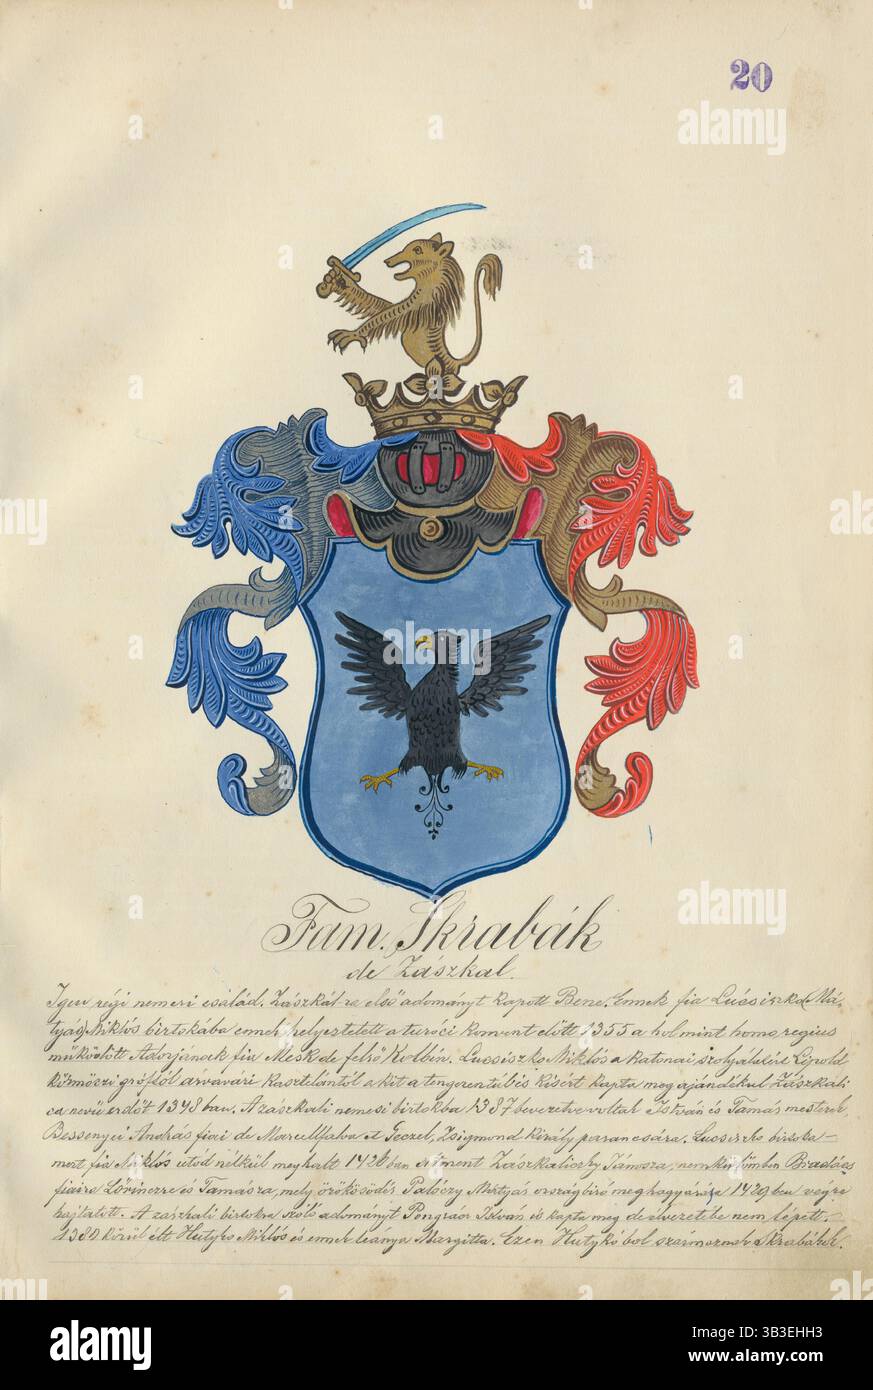 20
Fam. Skrabák
de Zászkal.
Igen régi nemesi család. Zászkál-ra első adományt kapott Bene. Ennek fia Lucsiszko (Má-
tyás) Miklós birtokába emez helyeztetett a turóci konvent előtt 1355 a hol mint homo regius
működött Adorjának fia Mesk de felső Kolbin. Lucsiszko Miklós a katonai szolgálatért Lipold
Körmöczi gróftól árvavári kastelántól a kit a tengerentúl is kisért kapta meg ajándékul Zászkali
ca nevű erdőt 1348 ban. A zászkali nemesi birtokba 1387 bevezetve voltak István és Tamás mesterek,
Bessenyei András fiai de Marcellfalva et Geczel, Zsigmond király parancsára. Lucsiszko birtoka-
mert fia Miklós utód nélkül meghalt 1426 ban átment Zászkaliczky Jánosra, nemkülömben Bradács
fiaira Lőrinczre és Tamásra, mely örökösödés Palóczy Mátyás országbiró meghagyására 1429 ben végre
hajtatott. A zászkali birtokra szóló adományt Pongrácz István is kapta meg de életbe nem lépett.—
1380 körül élt Hutyko Miklós és ennek leánya Margitta. Ezen Hutykóból származnak Skrabákok.
alamy
Image ID: B3EHH3
www.alamy.com